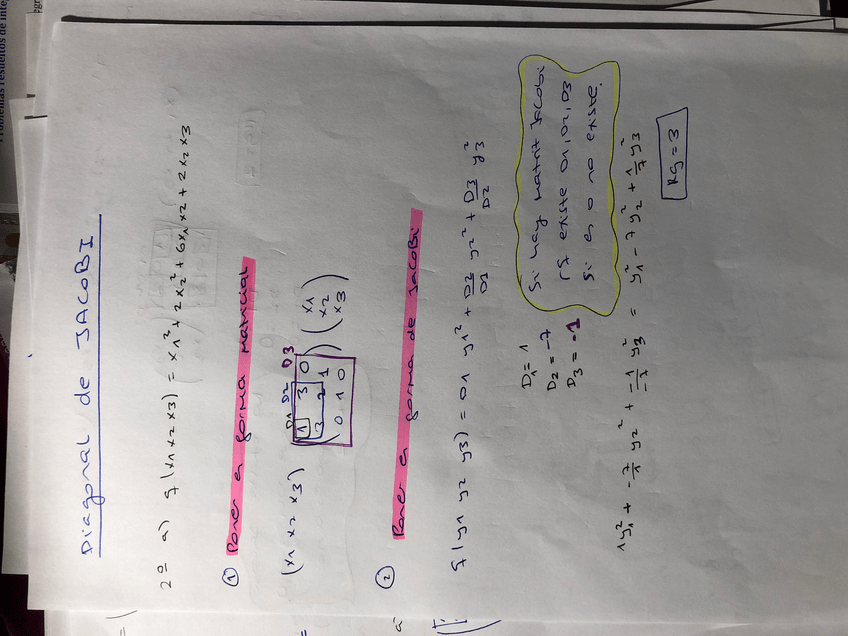 Diagonal de JACOBI
2º a) q(x1 x2 x3) = x1² + 2x2² + 6x1x2 + 2x2x3
① Poner en forma matricial
D1 D2 D3
(x1 x2 x3) (1 3 0) (x1)
3 2 1 x2
0 1 0 x3
② Poner en forma de JACOBi
q(y1 y2 y3) = D1 y1² + D2/D1 y2² + D3/D2 y3²
Si hay matriz Jacobi
rg existe D1, D2, D3
Si es 0 no existe.
D1 = 1
D2 = -7
D3 = -1
1y1² + -7/1 y2² + -1/-7 y3² = y1² - 7y2² + 1/7 y3²
Rg = 3
Problemas resueltos de inte